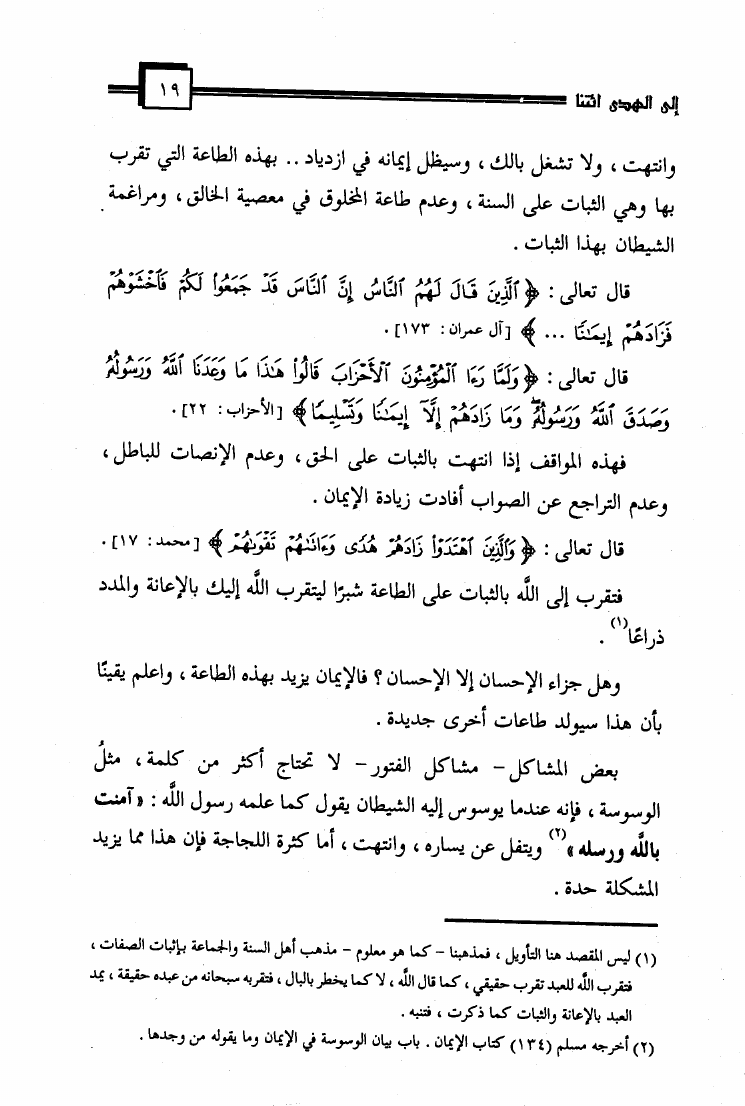 إلى الهدى ائتنا
١٩
وانتهت ، ولا تشغل بالك ، وسيظل إيمانه في ازدياد .. بهذه الطاعة التي تقرب
بها وهي الثبات على السنة ، وعدم طاعة المخلوق في معصية الخالق ، ومراغمة
الشيطان بهذا الثبات .
قال تعالى : ﴿ ٱلَّذِينَ قَالَ لَهُمُ ٱلنَّاسُ إِنَّ ٱلنَّاسَ قَدْ جَمَعُوا۟ لَكُمْ فَٱخْشَوْهُمْ
فَزَادَهُمْ إِيمَـٰنًا ... ﴾ [آل عمران : ١٧٣] .
قال تعالى : ﴿ وَلَمَّا رَءَا ٱلْمُؤْمِنُونَ ٱلْأَحْزَابَ قَالُوا۟ هَـٰذَا مَا وَعَدَنَا ٱللَّهُ وَرَسُولُهُۥ
وَصَدَقَ ٱللَّهُ وَرَسُولُهُۥ ۚ وَمَا زَادَهُمْ إِلَّآ إِيمَـٰنًا وَتَسْلِيمًا ﴾ [الأحزاب : ٢٢] .
فهذه المواقف إذا انتهت بالثبات على الحق ، وعدم الإنصات للباطل ،
وعدم التراجع عن الصواب أفادت زيادة الإيمان .
قال تعالى : ﴿ وَٱلَّذِينَ ٱهْتَدَوْا۟ زَادَهُمْ هُدًى وَءَاتَىٰهُمْ تَقْوَىٰهُمْ ﴾ [محمد : ١٧] .
فتقرب إلى اللَّه بالثبات على الطاعة شبرًا ليتقرب اللَّه إليك بالإعانة والمدد
ذراعًا(١) .
وهل جزاء الإحسان إلا الإحسان ؟ فالإيمان يزيد بهذه الطاعة ، واعلم يقينًا
بأن هذا سيولد طاعات أخرى جديدة .
بعض المشاكل – مشاكل الفتور – لا تحتاج أكثر من كلمة ، مثلُ
الوسوسة ، فإنه عندما يوسوس إليه الشيطان يقول كما علمه رسول اللَّه : « آمنت
باللَّه ورسله »(٢) ويتفل عن يساره ، وانتهت ، أما كثرة اللجاجة فإن هذا مما يزيد
المشكلة حدة .
(١) ليس المقصد هنا التأويل ، فمذهبنا – كما هو معلوم – مذهب أهل السنة والجماعة بإثبات الصفات ،
فتقرب اللَّه للعبد تقرب حقيقي ، كما قال اللَّه ، لا كما يخطر بالبال ، فتقربه سبحانه من عبده حقيقة ، يمد
العبد بالإعانة والثبات كما ذكرت ، فتنبه .
(٢) أخرجه مسلم (١٣٤) كتاب الإيمان . باب بيان الوسوسة في الإيمان وما يقوله من وجدها .